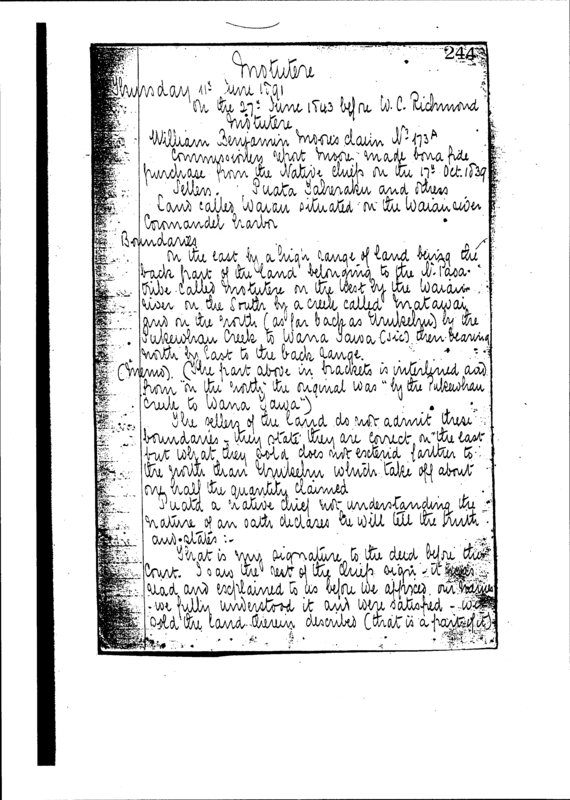 244
Motutere
Thursday 11th June 1891
On the 27th June 1843 before W. C. Richmond
Motutere
William Benjamin Moore's claim No 173A
Commissioners report Moore made bona fide
purchase from the Native Chiefs on the 17th Oct. 1839
Sellers. Puata Taheraku and others
Land called Waiau situated on the Waiau river
Coromandel harbor
Boundaries
On the east by a high range of land being the
back part of the land belonging to the N. Pasa
tribe called Motutere on the West by the Waiau
river on the South by a creek called Matawai
and on the north (as far back as Urukehu) by the
Pukewhau Creek to Wana Tawa (sic) then bearing
north by East to the back range.
(Memo). (The part above in brackets is interlined and
from "on the north" the original was "by the Pukewhau
Creek to Wana Tawa")
The sellers of the land do not admit these
boundaries - they state they are correct on the east
but what they sold does not extend farther to
the north than Urukehu which take off about
one half the quantity claimed
Puata a native chief not understanding the
nature of an oath declares he will tell the truth
and states :-
That is my signature to the deed before the
Court. I saw the rest of the Chiefs sign - it was
read and explained to us before we affixed our names
- we fully understood it and were satisfied - we
sold the land therein described (that is a part of it)